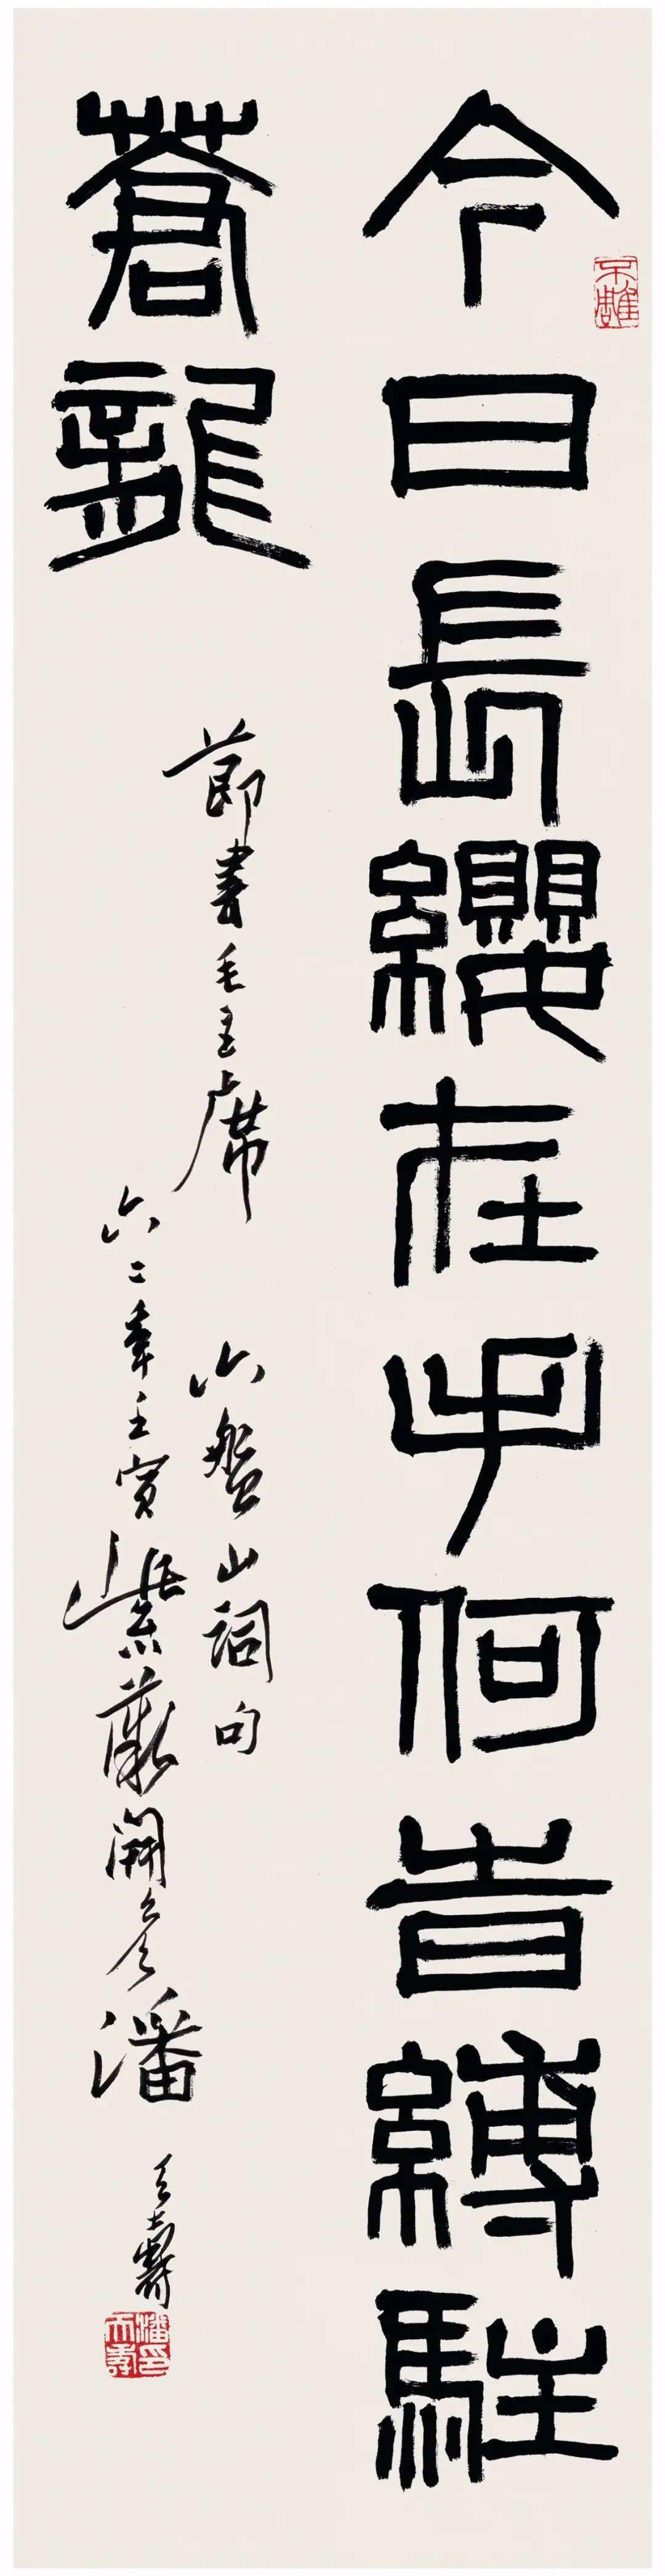 今日長纓在手何旹縛駐
蒼龍
節書毛主席六盤山詞句
六二年壬寅紫薇開矣潘天壽
不雕
潘天壽印